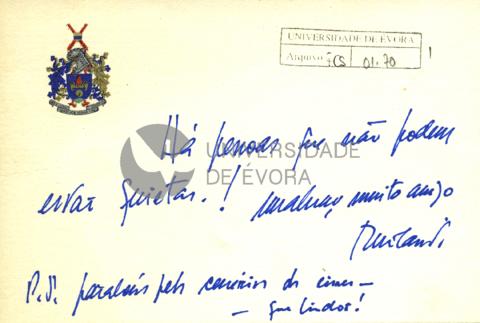 UNIVERSIDADE DE ÉVORA
Arquivo FCS 01.70
Há pessoas que não podem
UNIVERSIDADE
DE ÉVORA
estar quietas.! um abraço, muito amigo
P.S. parabéns pelo
que lindos!